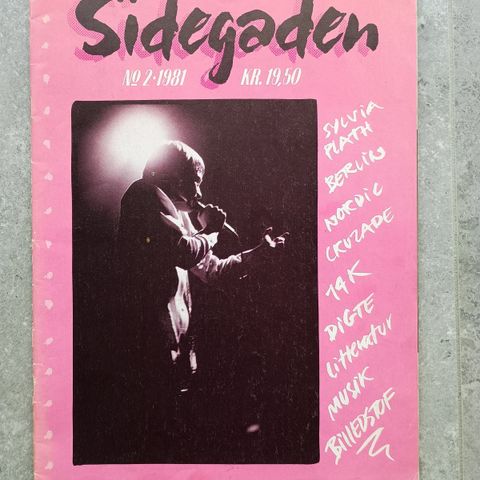 Sidegaden
No 2·1981 KR. 19,50
SYLVIA
PLATH
BERLIN
NORDIC
CRUZADE
DIGTE
Litteratur
MUSIK
BillEDSTOF